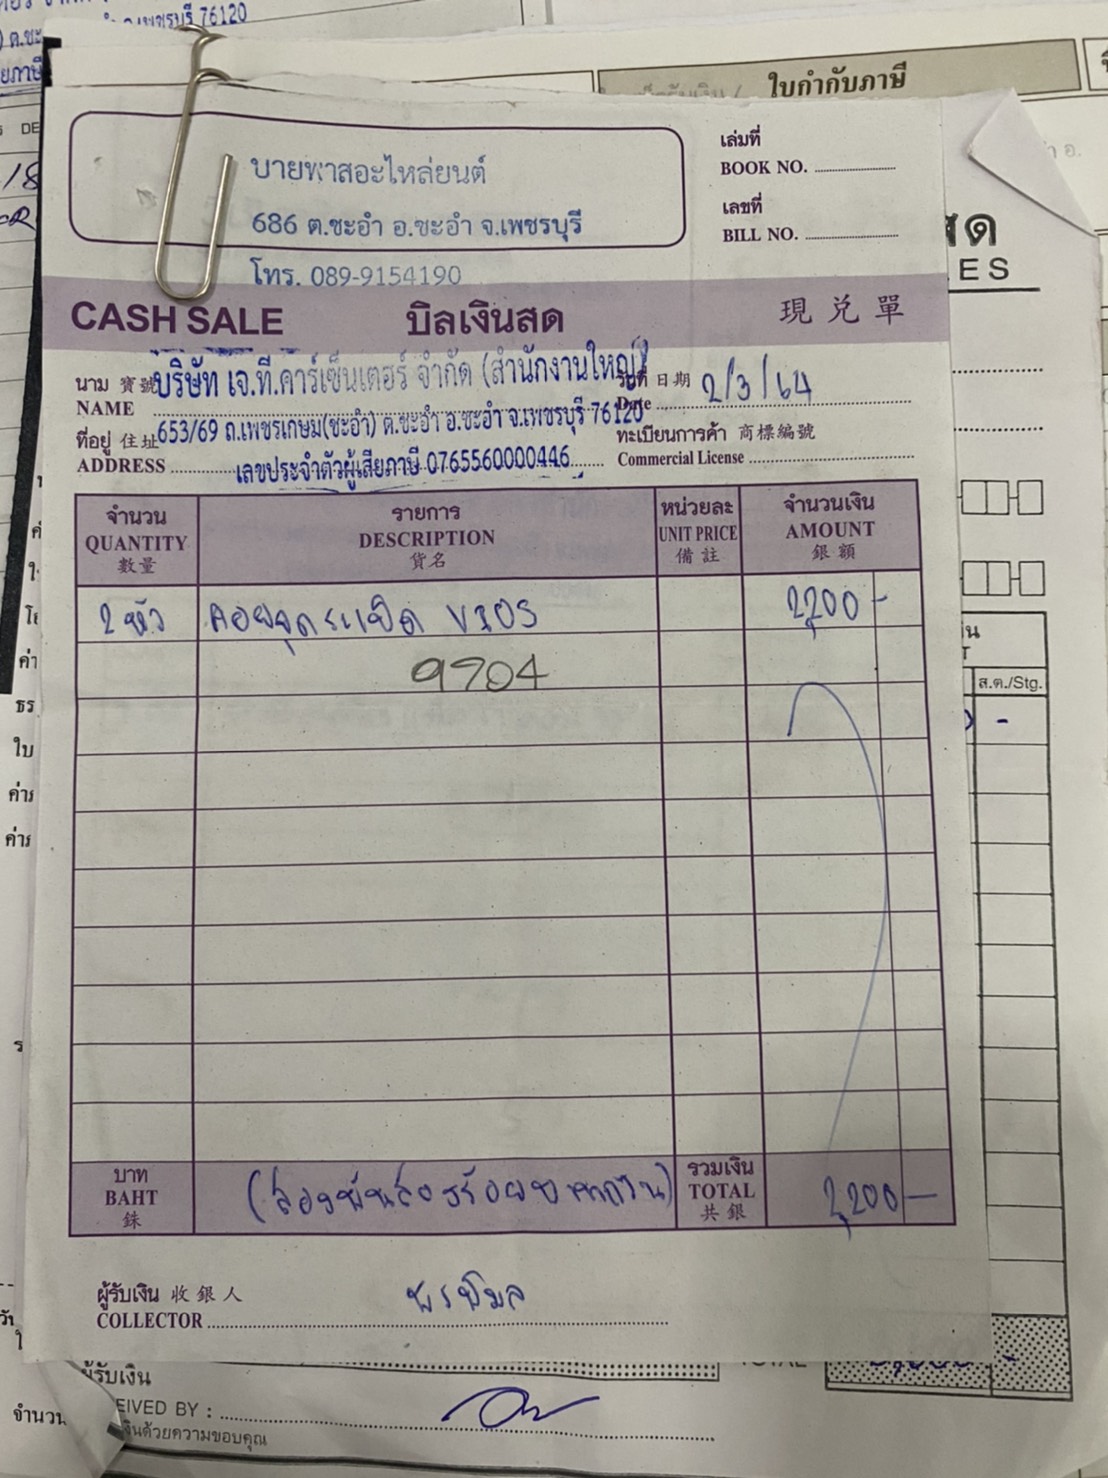 จ.เพชรบุรี 76120
ใบกำกับภาษี
บายพาสอะไหล่ยนต์
686 ต.ชะอำ อ.ชะอำ จ.เพชรบุรี
โทร. 089-9154190
เล่มที่
BOOK NO.
เลขที่
BILL NO.
CASH SALE บิลเงินสด 現兌單
นาม 寶號 บริษัท เจ.ที.คาร์เซ็นเตอร์ จำกัด (สำนักงานใหญ่)
NAME
วันที่ 日期 2/3/64
Date
ที่อยู่ 住址 653/69 ถ.เพชรเกษม(ชะอำ) ต.ชะอำ อ.ชะอำ จ.เพชรบุรี 76120
ADDRESS เลขประจำตัวผู้เสียภาษี 0765560000446
ทะเบียนการค้า 商標編號
Commercial License
จำนวน รายการ หน่วยละ จำนวนเงิน
QUANTITY DESCRIPTION UNIT PRICE AMOUNT
數量 貨名 備註 銀額
2 หัว คอยจุดระเบิด VIOS 2,200 -
9904
ส.ต./Stg.
บาท (สองพันสองร้อยบาทถ้วน) รวมเงิน
BAHT TOTAL 2,200 -
銖 共銀
ผู้รับเงิน 收銀人 พรพิมล
COLLECTOR
TOTAL
ผู้รับเงิน
EIVED BY :
เงินด้วยความขอบคุณ